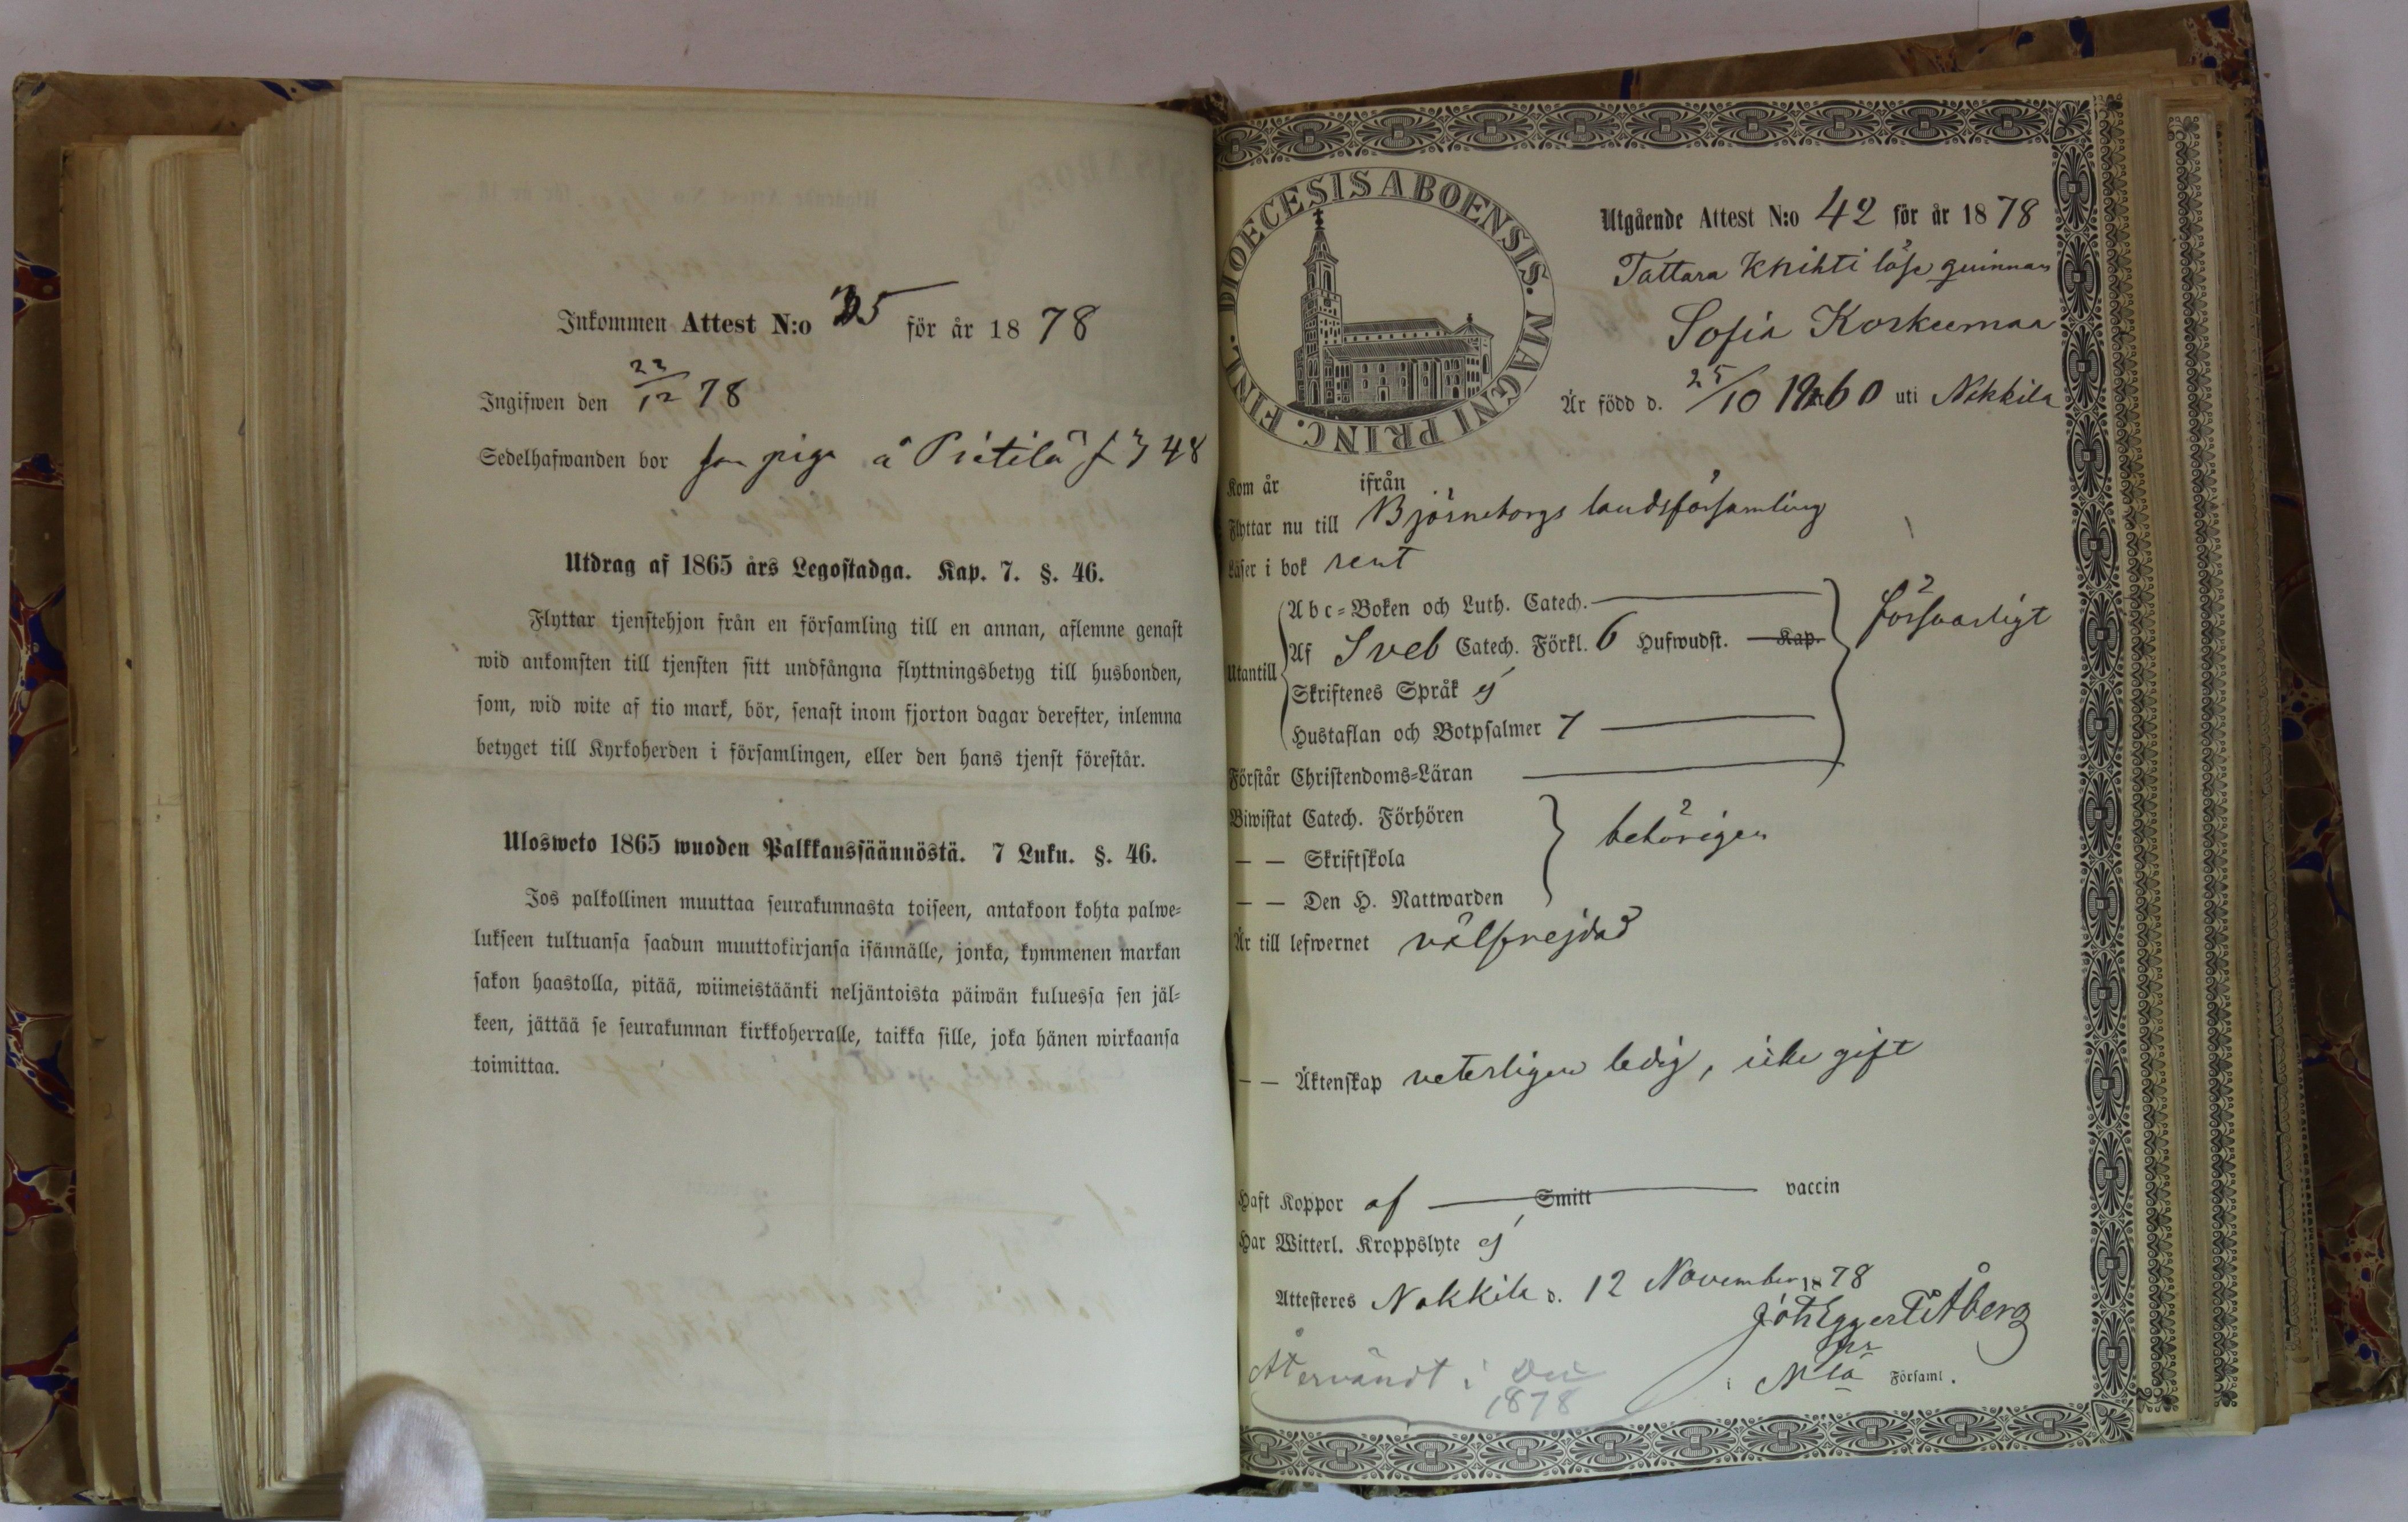 Inkommen Attest N:o 35 för år 1878
Ingifwen den 22/12 78
Sedelhafwanden bor som piga å Pietilä f 348
Utdrag af 1865 års Legostadga. Kap. 7. §. 46.
Flyttar tjenstehjon från en församling till en annan, aflemne genast
wid ankomsten till tjensten sitt undfångna flyttningsbetyg till husbonden,
som, wid wite af tio mark, bör, senast inom fjorton dagar derefter, inlemna
betyget till Kyrkoherden i församlingen, eller den hans tjenst förestår.
Ulosweto 1865 wuoden Palkkaussäännöstä. 7 Luku. §. 46.
Jos palkollinen muuttaa seurakunnasta toiseen, antakoon kohta palwe=
lukseen tultuansa saadun muuttokirjansa isännälle, jonka, kymmenen markan
sakon haastolla, pitää, wiimeistäänki neljäntoista päiwän kuluessa sen jäl=
keen, jättää se seurakunnan kirkkoherralle, taikka sille, joka hänen wirkaansa
toimittaa.
FINL. DIOECESIS ABOENSIS. MAGNI PRINC.
Utgående Attest N:o 42 för år 1878
Tattara Knihti lösa qvinnan
Sofia Koskeemaa
Är född d. 25/10 1860 uti Nakkila
Kom år ifrån
Flyttar nu till Björneborgs landsförsamling
Läser i bok rent
Utantill
Abc=Boken och Luth. Catech.
Af Sveb Catech. Förkl. 6 Hufwudst. Kap.
försvarligt
Skriftenes Språk ej
Hustaflan och Botpsalmer 7
Förstår Christendoms=Läran
Biwistat Catech. Förhören
— — Skriftskola
behörigen
— — Den H. Nattwarden
Är till lefwernet välfrejdad
— — Äktenskap veterligen ledig, icke gift
Haft Koppor af Smitt vaccin
Har Witterl. Kroppslyte ej
Attesteres Nakkila d. 12 November 1878
Åberg
i N:la Församl.
Återvändt i Dec
1878